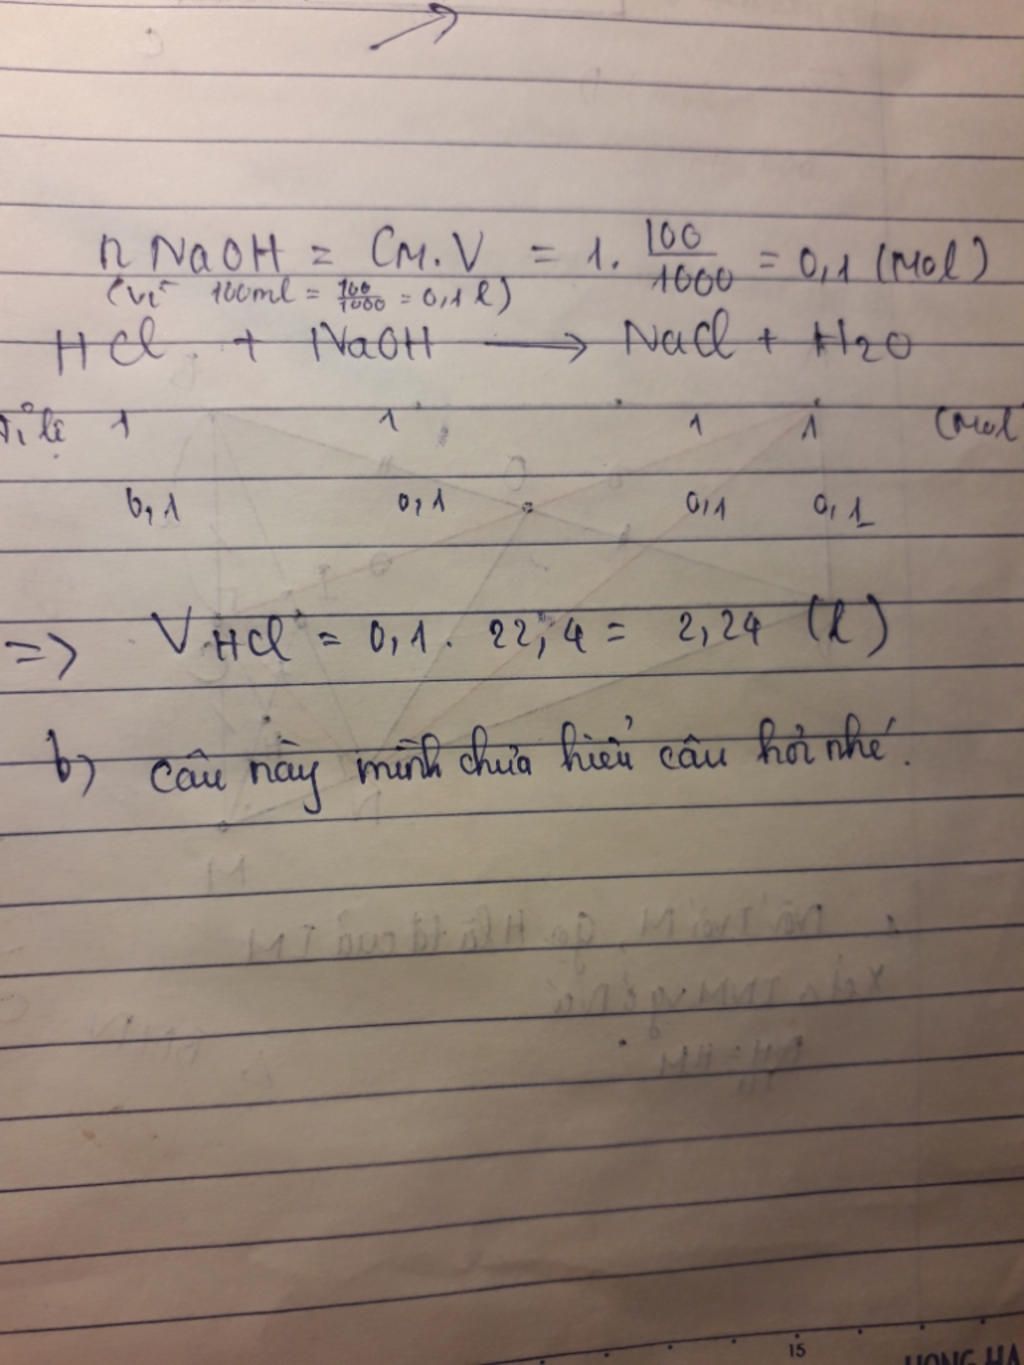 n NaOH = CM.V = 1. 100/1000 = 0,1 (mol)
(Vì 100ml = 100/1000 = 0,1 l)
HCl + NaOH → NaCl + H2O
Tỉ lệ 1 1 1 1 (mol
0,1 0,1 0,1 0,1
=> V HCl = 0,1 . 22,4 = 2,24 (l)
b) câu này mình chưa hiểu câu hỏi nhé.
15
HONG HA